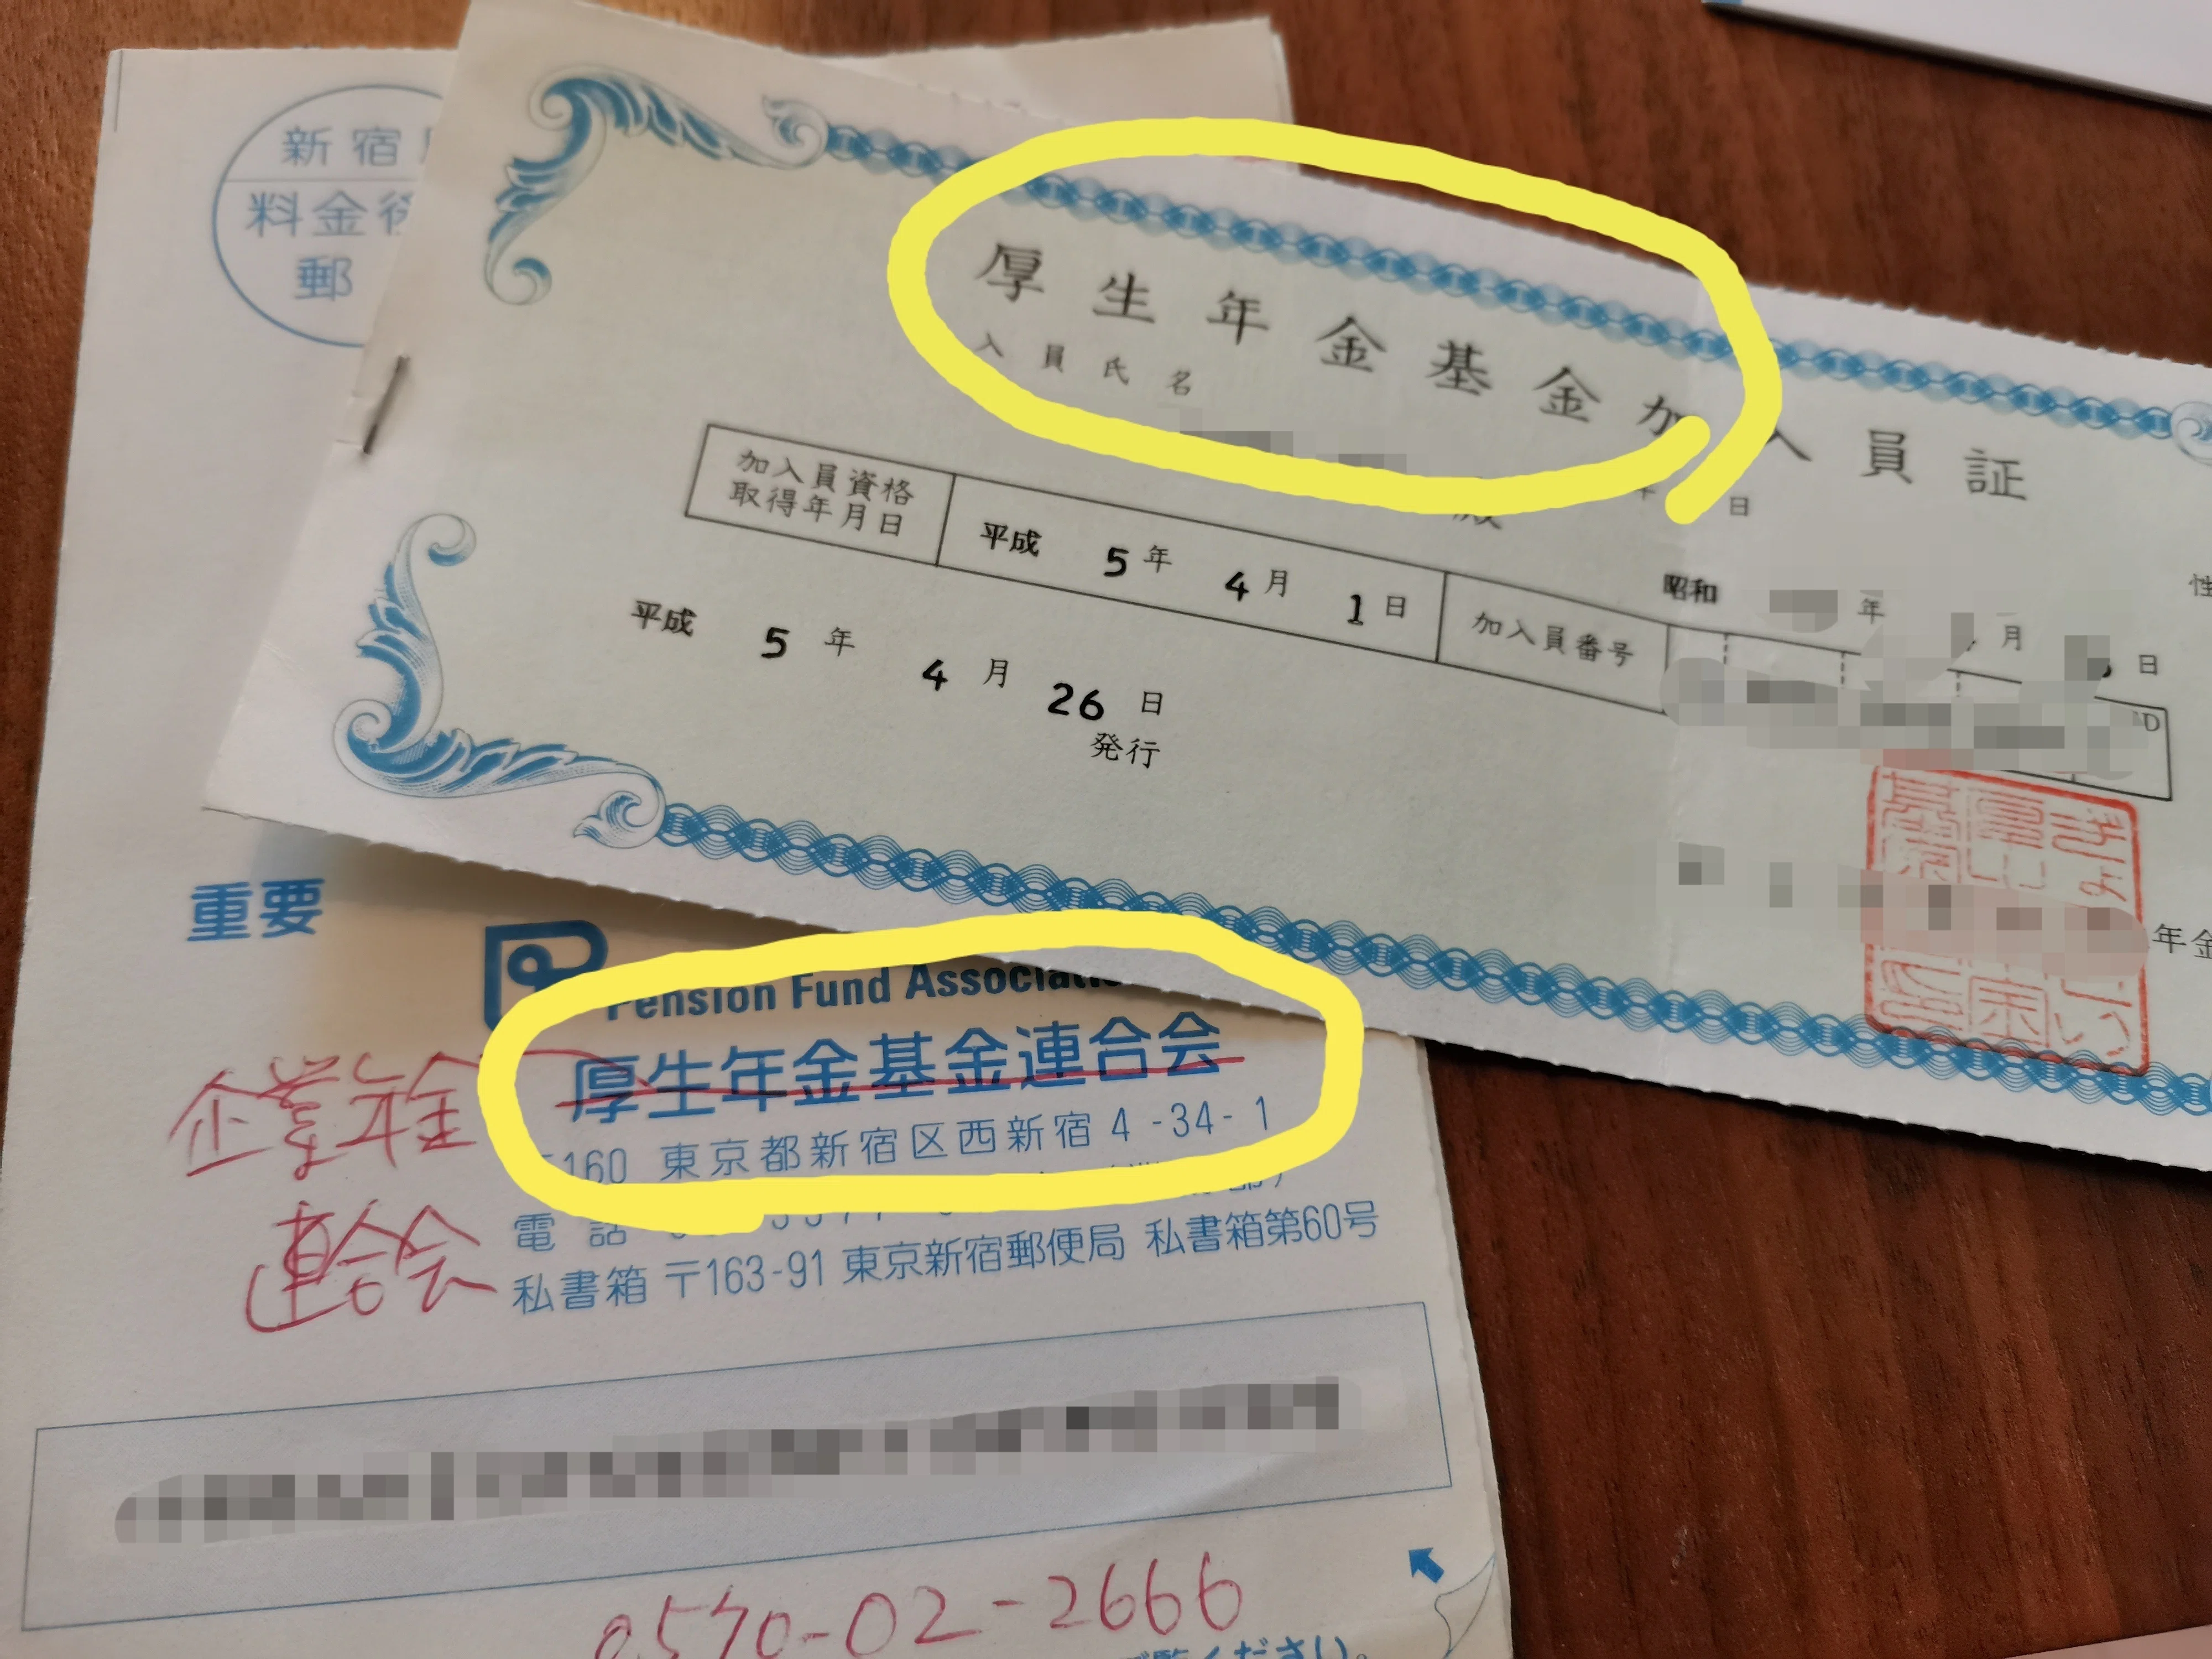 新宿
料金後
郵
厚生年金基金加入員証
入員氏名
殿
年
日
加入員資格
取得年月日
平成 5年 4月 1日
加入員番号
昭和
年
月
日
性
平成 5年 4月 26日
発行
年金
重要
Pension Fund Associati
厚生年金基金連合会
企業年金
連合会
160 東京都新宿区西新宿 4-34-1
電話
私書箱 〒163-91 東京新宿郵便局 私書箱第60号
0570-02-2666
ご覧ください。